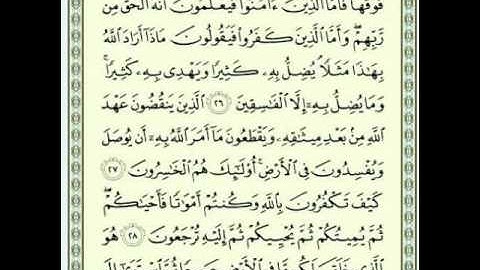 فَوْقَهَا فَأَمَّا ٱلَّذِينَ ءَامَنُوا۟ فَيَعْلَمُونَ أَنَّهُ ٱلْحَقُّ مِن
رَّبِّهِمْ ۖ وَأَمَّا ٱلَّذِينَ كَفَرُوا۟ فَيَقُولُونَ مَاذَآ أَرَادَ ٱللَّهُ
بِهَـٰذَا مَثَلًا ۘ يُضِلُّ بِهِۦ كَثِيرًا وَيَهْدِى بِهِۦ كَثِيرًا ۚ
وَمَا يُضِلُّ بِهِۦٓ إِلَّا ٱلْفَـٰسِقِينَ ٢٦ ٱلَّذِينَ يَنقُضُونَ عَهْدَ
ٱللَّهِ مِنۢ بَعْدِ مِيثَـٰقِهِۦ وَيَقْطَعُونَ مَآ أَمَرَ ٱللَّهُ بِهِۦٓ أَن يُوصَلَ
وَيُفْسِدُونَ فِى ٱلْأَرْضِ ۚ أُو۟لَـٰٓئِكَ هُمُ ٱلْخَـٰسِرُونَ ٢٧
كَيْفَ تَكْفُرُونَ بِٱللَّهِ وَكُنتُمْ أَمْوَٰتًا فَأَحْيَـٰكُمْ ۖ
ثُمَّ يُمِيتُكُمْ ثُمَّ يُحْيِيكُمْ ثُمَّ إِلَيْهِ تُرْجَعُونَ ٢٨ هُوَ
ٱلَّذِى خَلَقَ لَكُم مَّا فِى ٱلْأَرْضِ جَمِيعًا ثُمَّ ٱسْتَوَىٰٓ إِلَى